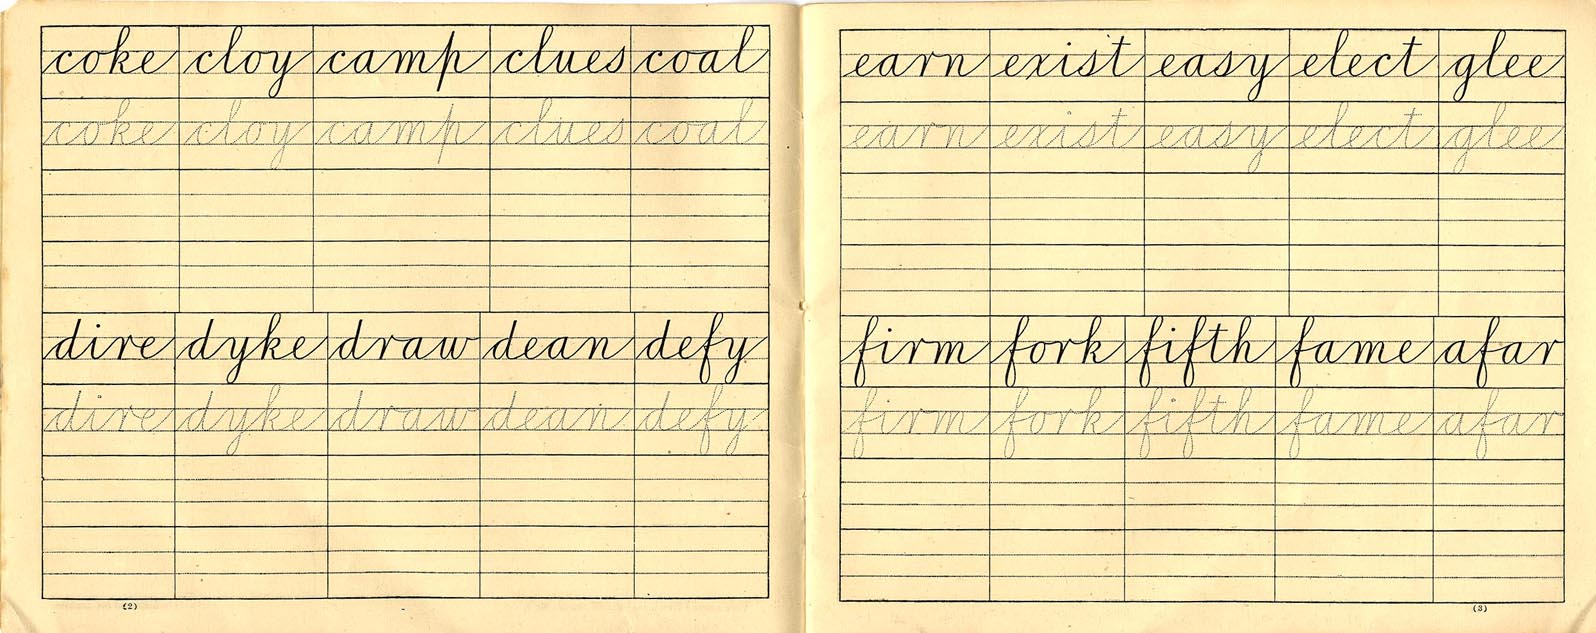 coke cloy camp clues coal
coke cloy camp clues coal
dire dyke draw dean defy
dire dyke draw dean defy
(2)
earn exist easy elect glee
earn exist easy elect glee
firm fork fifth fame afar
firm fork fifth fame afar
(3)